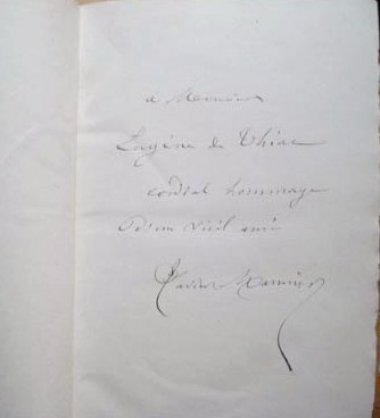 à Monsieur
Eugène de Thiac
cordial hommage
d'un vieil ami
Xavier Marmier